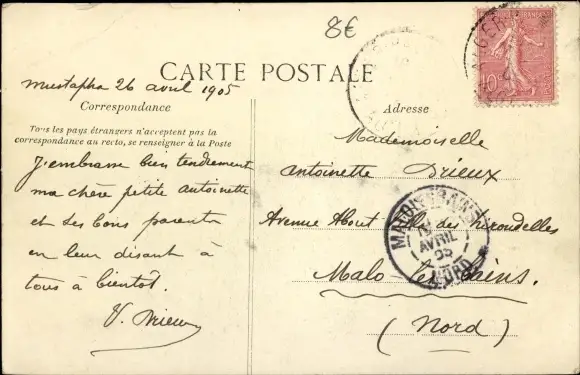 8€
CARTE POSTALE
Mustapha 26 avril 1905
Correspondance
Adresse
Tous les pays étrangers n'acceptent pas la
correspondance au recto, se renseigner à la Poste
J'embrasse bien tendrement
ma chère petite antoinette
et ses bons parents
en leur disant à
tous à bientôt.
V. Drieux
Mademoiselle
antoinette Drieux
Avenue About des hirondelles
Malo les Bains.
(Nord)
10
MALO
AVRIL
NORD